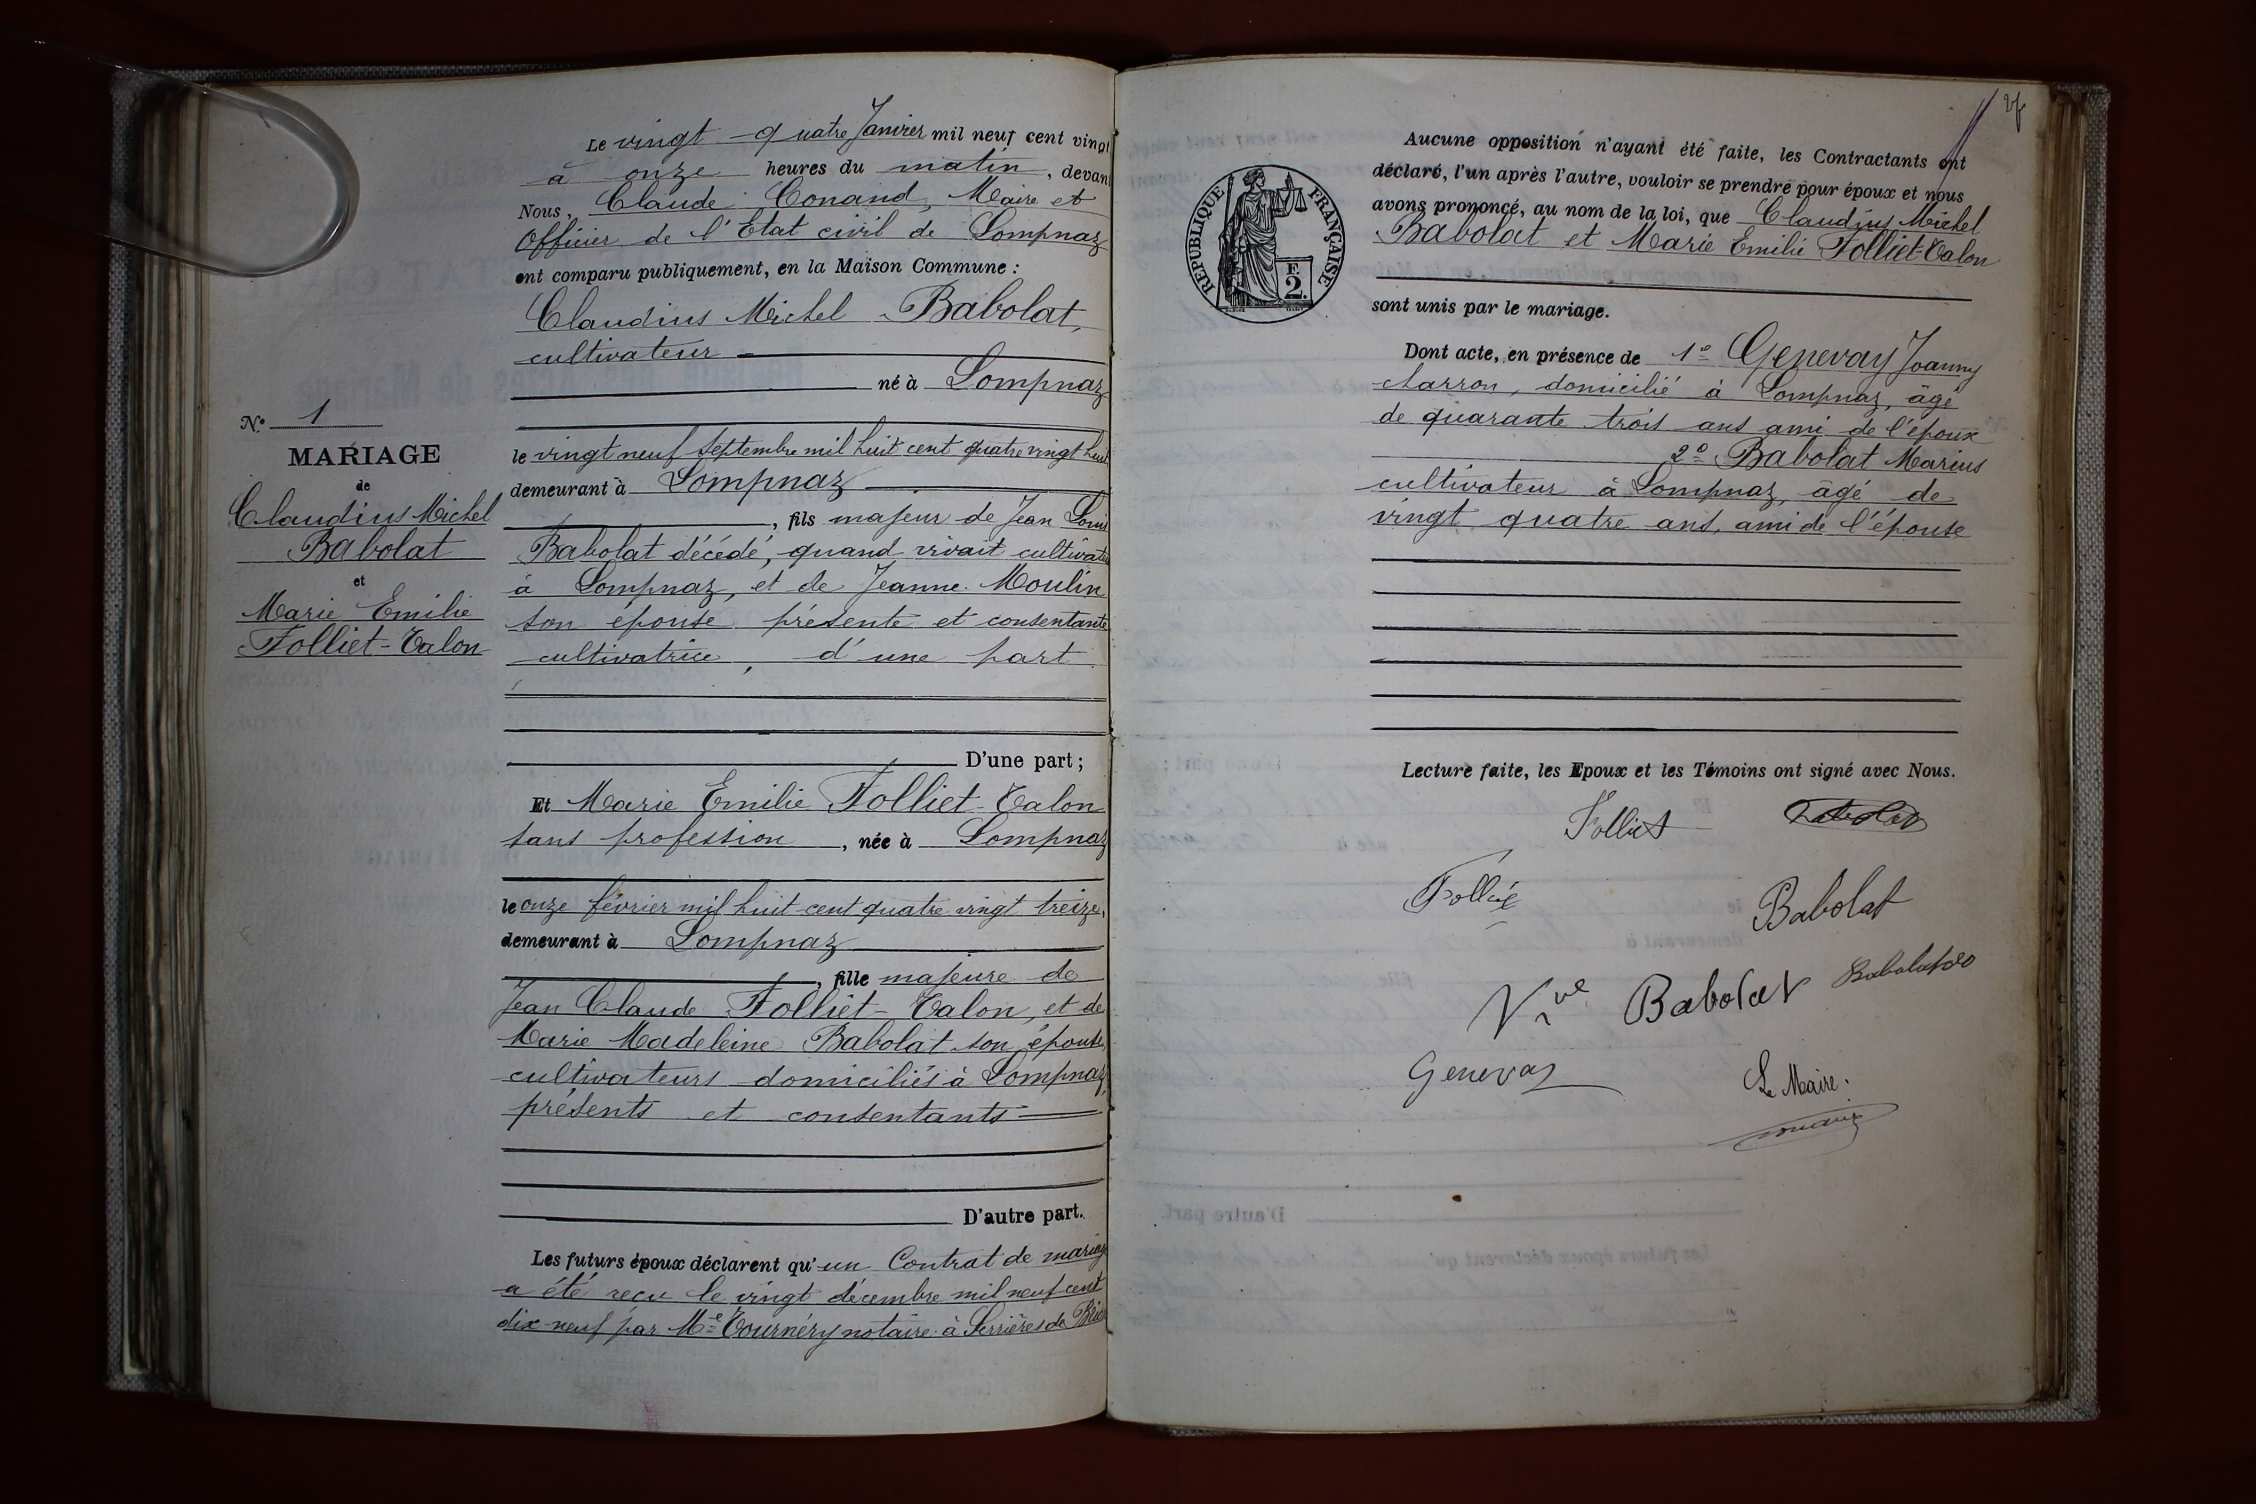 N° 1
MARIAGE
de
Claudius Michel
Babolat
et
Marie Emilie
Folliet-Talon
Le vingt-quatre Janvier mil neuf cent vingt
à onze heures du matin, devant
Nous, Claude Conand, Maire et
Officier de l'Etat civil de Lompnaz
ont comparu publiquement, en la Maison Commune :
Claudius Michel Babolat,
cultivateur
né à Lompnaz
le vingt neuf septembre mil huit cent quatre vingt huit
demeurant à Lompnaz
, fils majeur de Jean Louis
Babolat décédé, quand vivait cultivateur
à Lompnaz, et de Jeanne Moulin
son épouse présente et consentante
cultivatrice, d'une part
D'une part ;
Et Marie Emilie Folliet-Talon
sans profession, née à Lompnaz
le onze février mil huit cent quatre vingt treize,
demeurant à Lompnaz
, fille majeure de
Jean Claude Folliet-Talon, et de
Marie Madeleine Babolat son épouse,
cultivateurs domiciliés à Lompnaz,
présents et consentants
D'autre part.
Les futurs époux déclarent qu'un Contrat de mariage
a été reçu le vingt décembre mil neuf cent
dix-neuf par Me Tournéry notaire à Serrières de
RÉPUBLIQUE FRANÇAISE
F.
2.
Aucune opposition n'ayant été faite, les Contractants ont
déclaré, l'un après l'autre, vouloir se prendre pour époux et nous
avons prononcé, au nom de la loi, que Claudius Michel
Babolat et Marie Emilie Folliet-Talon
sont unis par le mariage.
Dont acte, en présence de 1° Genevay Joanny
charron, domicilié à Lompnaz, âgé
de quarante trois ans ami de l'époux
2° Babolat Marius
cultivateur à Lompnaz, âgé de
vingt quatre ans, ami de l'épouse
Lecture faite, les Epoux et les Témoins ont signé avec Nous.
Folliet
Babolat
Vve Babolat
Genevay
Le Maire :